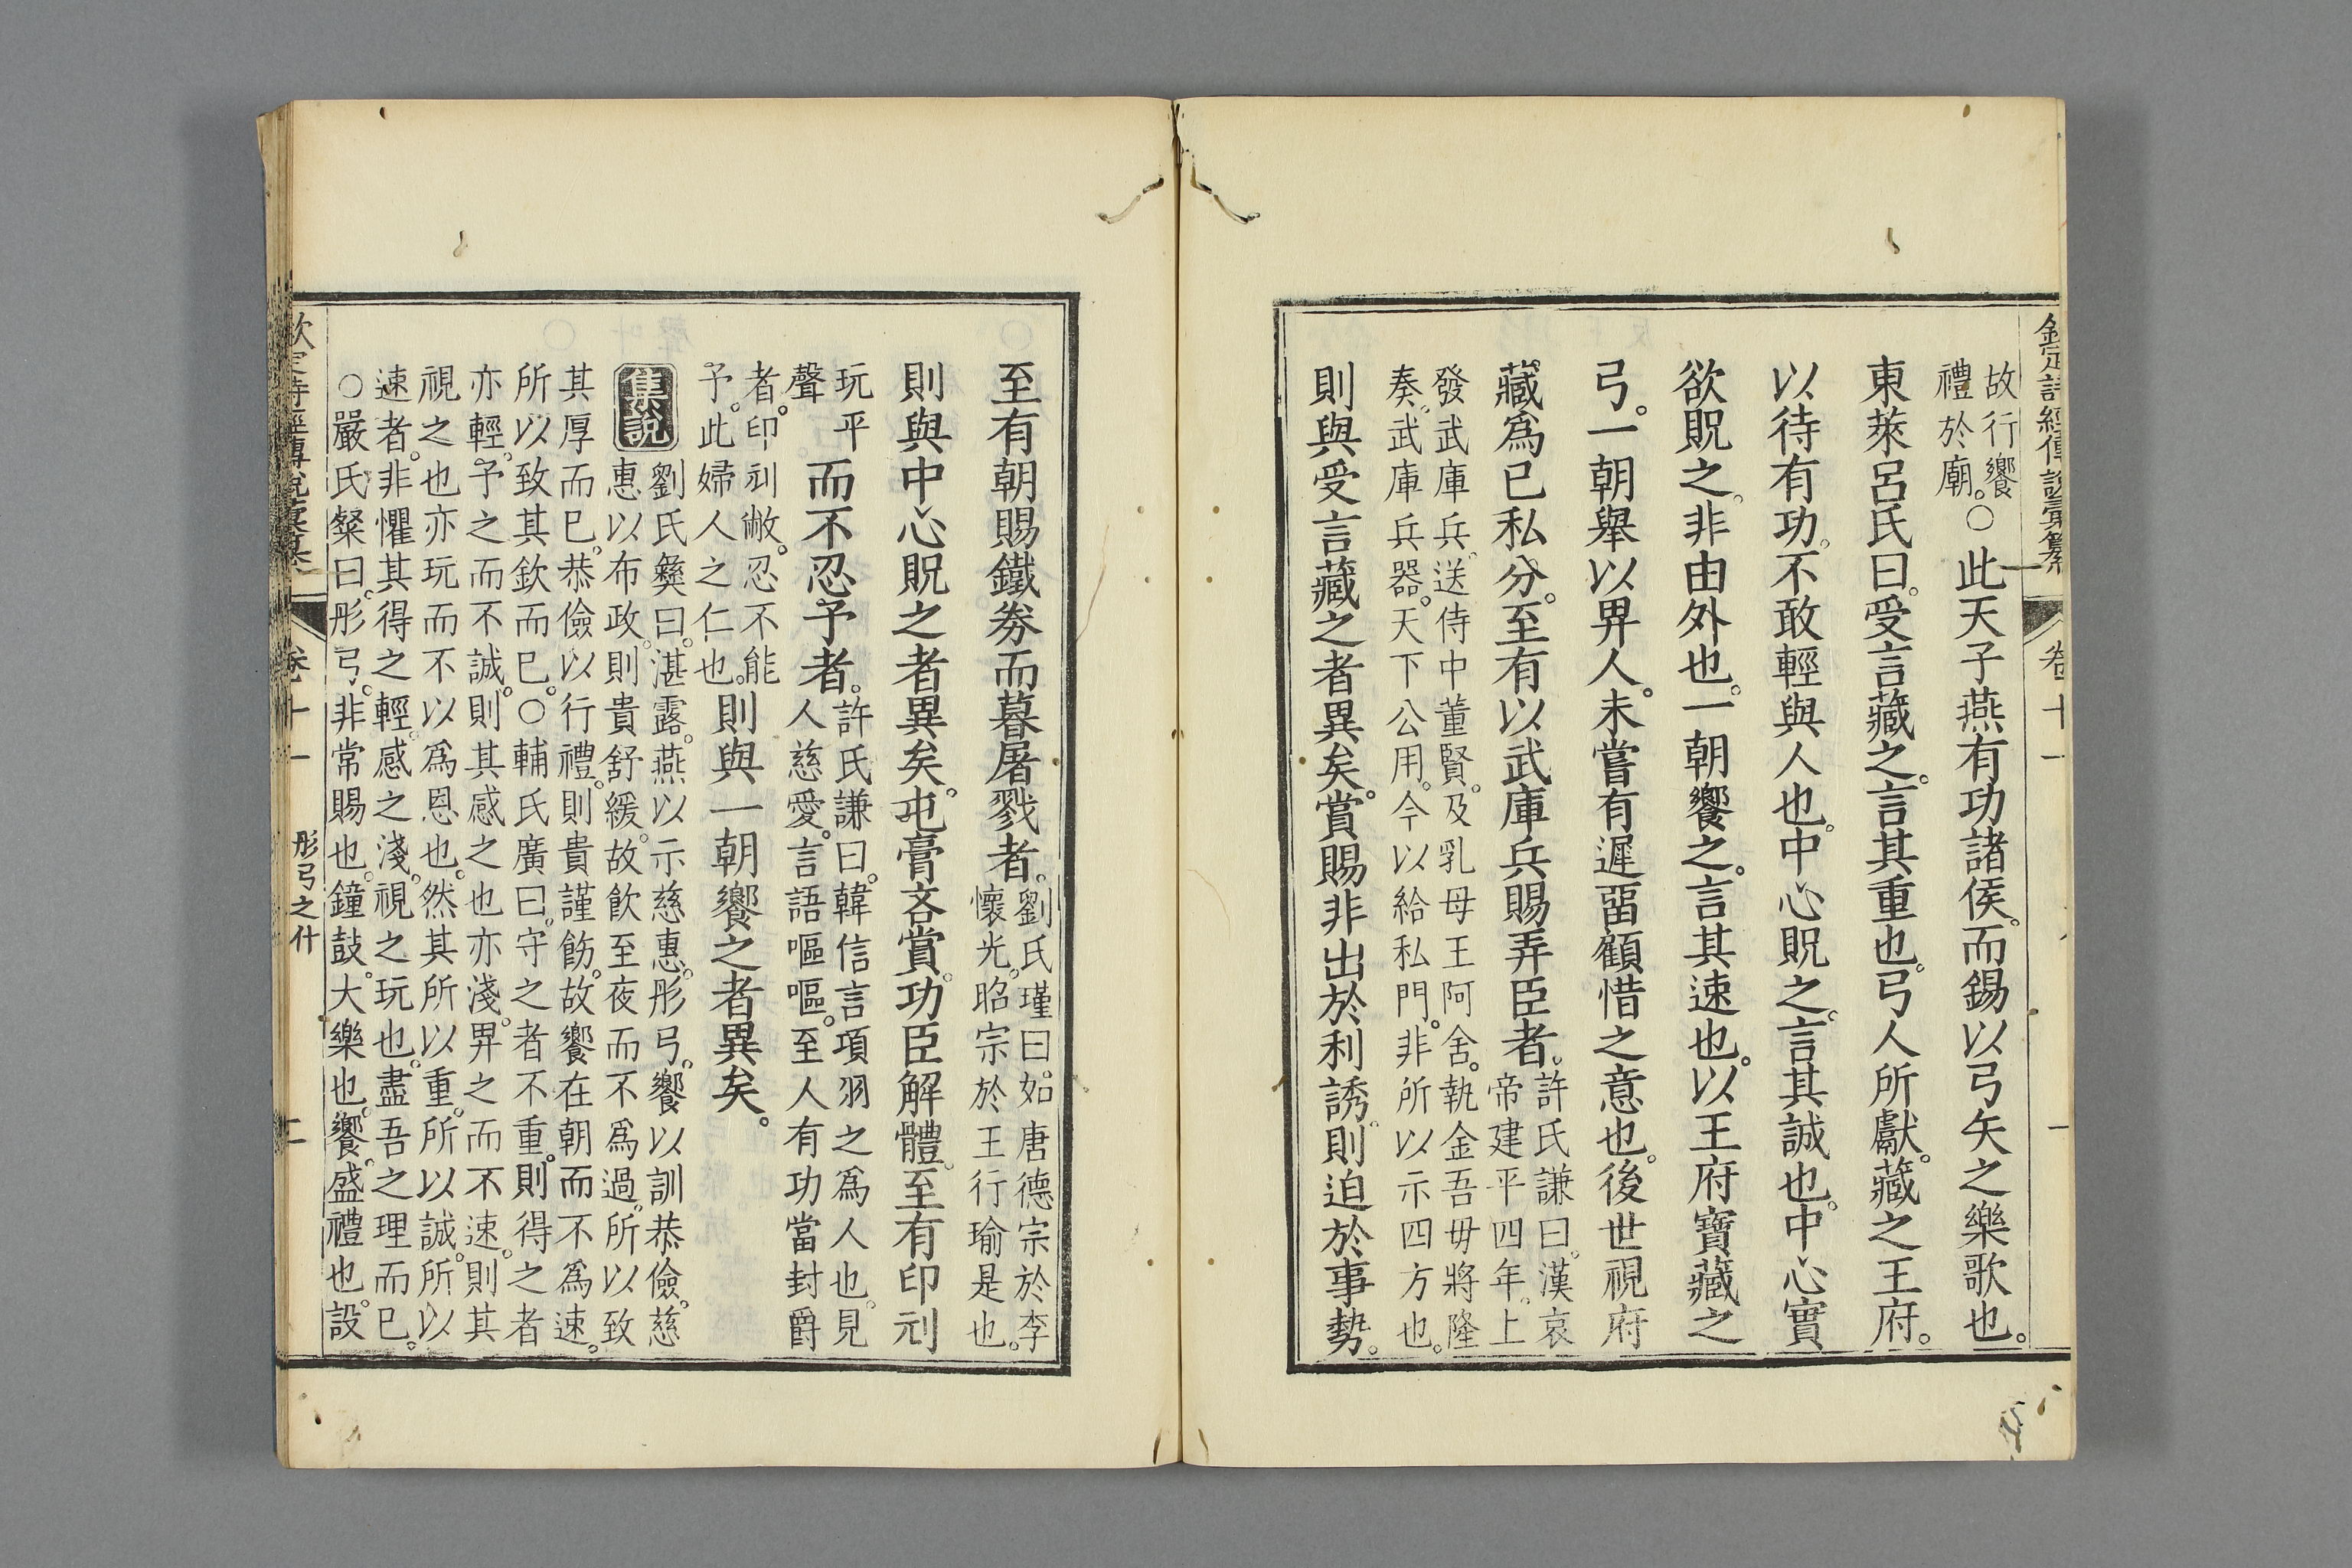 欽定詩經傳說彙纂 卷十一
故行饗
禮於廟。○此天子燕有功諸侯。而錫以弓矢之樂歌也。
東萊呂氏曰。受言藏之。言其重也。弓人所獻。藏之王府。
以待有功。不敢輕與人也。中心貺之。言其誠也。中心實
欲貺之。非由外也。一朝饗之。言其速也。以王府寶藏之
弓。一朝舉以畀人。未嘗有遲畱顧惜之意也。後世視府
藏爲已私分。至有以武庫兵賜弄臣者。
許氏謙曰。漢哀
帝建平四年。上
發武庫兵。送侍中董賢。及乳母王阿舍。執金吾毋將隆
奏。武庫兵器。天下公用。今以給私門。非所以示四方也。
則與受言藏之者異矣。賞賜非出於利誘。則迫於事勢。
至有朝賜鐵券而暮屠戮者。
劉氏瑾曰。如唐德宗於李
懷光。昭宗於王行瑜是也。
則與中心貺之者異矣。屯膏吝賞。功臣解體。至有印刓
玩平
聲
而不忍予者。
許氏謙曰。韓信言項羽之爲人也。見
人慈愛。言語嘔嘔。至人有功當封爵
者。印刓敝。忍不能
予。此婦人之仁也。
則與一朝饗之者異矣。
集說
劉氏彝曰。湛露。燕以示慈惠。彤弓。饗以訓恭儉。慈
惠以布政。則貴舒緩。故飮至夜而不爲過。所以致
其厚而已。恭儉以行禮。則貴謹飭。故饗在朝而不爲速。
所以致其欽而已。○輔氏廣曰。守之者不重。則得之者
亦輕。予之而不誠。則其感之也亦淺。畀之而不速。則其
視之也亦玩而不以爲恩也。然其所以重。所以誠。所以
速者。非懼其得之輕。感之淺。視之玩也。盡吾之理而已。
○嚴氏粲曰。彤弓。非常賜也。鐘鼓。大樂也。饗。盛禮也。設
欽定詩經傳說彙纂 卷十一 彤弓之什 二